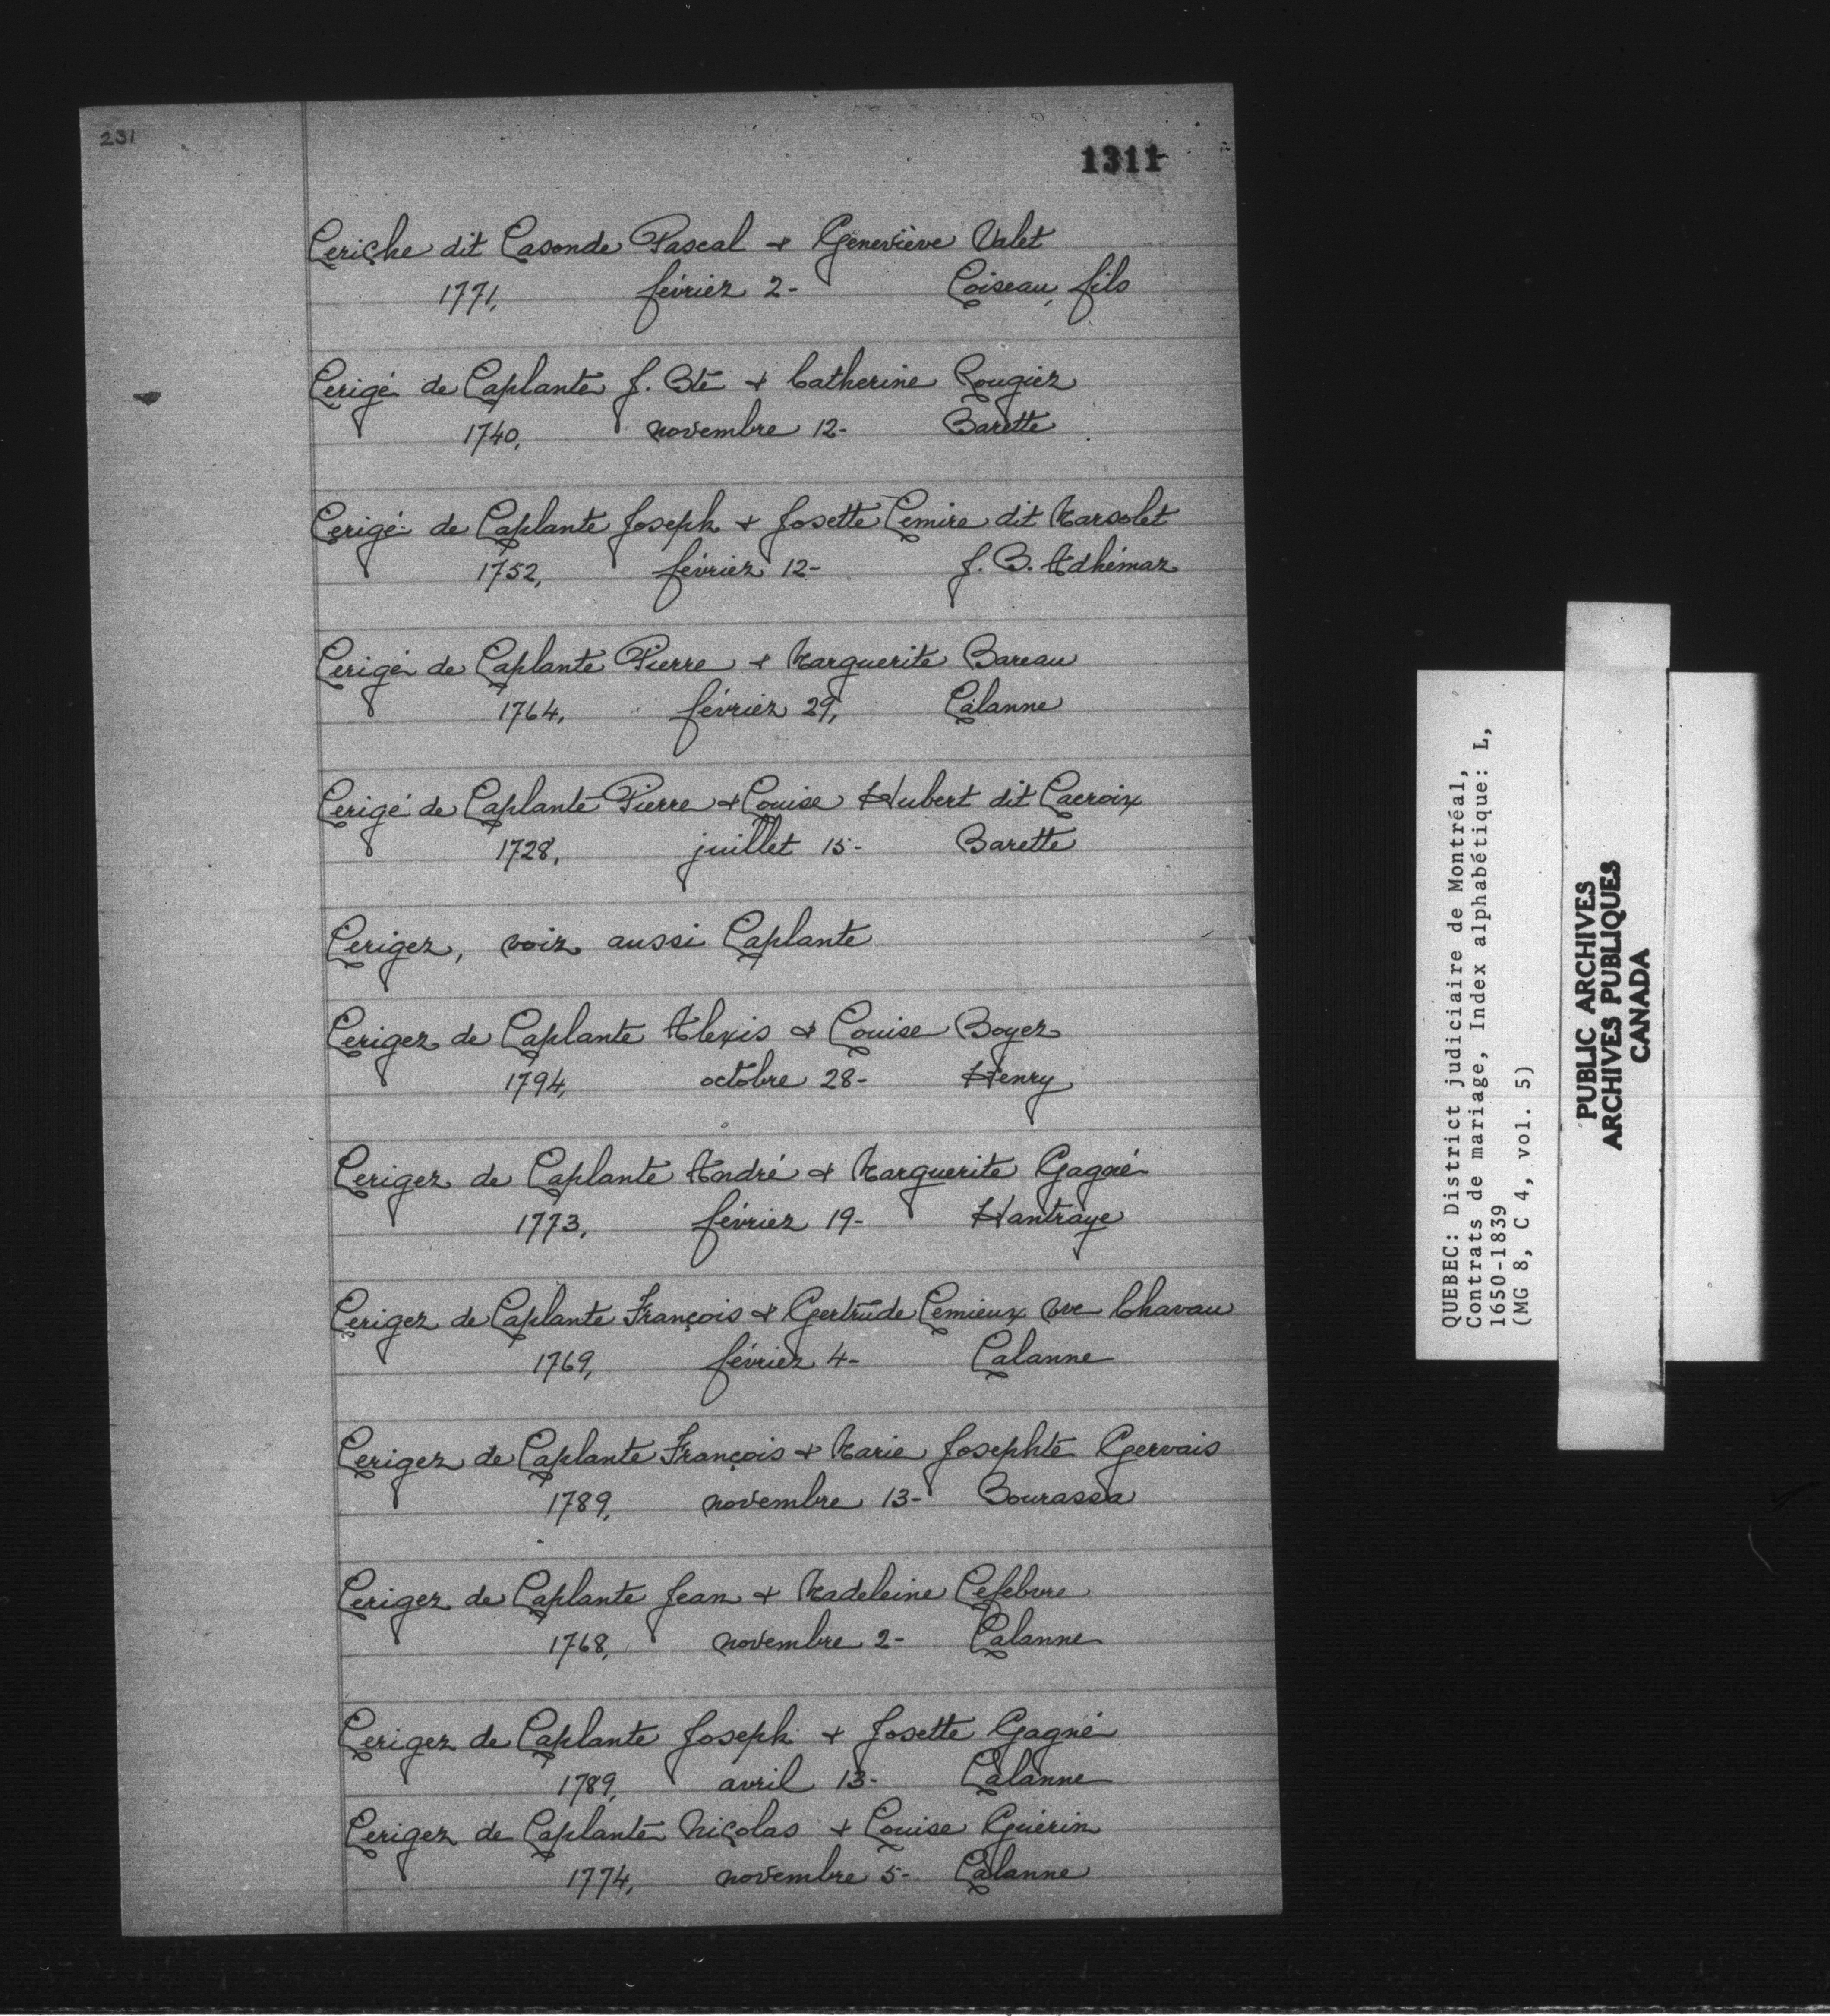 231
1311
Leriche dit Lasonde Pascal & Geneviève Valet
1771, février 2- Loiseau, fils
Lerigé de Laplante J. Bte & Catherine Rougier
1740, novembre 12- Barette
Lerigé de Laplante Joseph & Josette Lemire dit Marsolet
1752, février 12- J. B. Adhémar
Lerigé de Laplante Pierre & Marguerite Bareau
1764, février 29, Lalanne
Lerigé de Laplante Pierre & Louise Hubert dit Lacroix
1728, juillet 15- Barette
Leriger, voir aussi Laplante
Leriger de Laplante Alexis & Louise Boyer
1794, octobre 28- Henry
Leriger de Laplante André & Marguerite Gagné
1773, février 19- Hantraye
Leriger de Laplante François & Gertrude Lemieux vve Chavau
1769, février 4- Lalanne
Leriger de Laplante François & Marie Josephte Gervais
1789, novembre 13- Bourassa
Leriger de Laplante Jean & Madeleine Lefebvre
1768, novembre 2- Lalanne
Leriger de Laplante Joseph & Josette Gagné
1789, avril 13- Lalanne
Leriger de Laplante Nicolas & Louise Guérin
1774, novembre 5- Lalanne
QUEBEC: District judiciaire de Montréal,
Contrats de mariage, Index alphabétique: L,
1650-1839
(MG 8, C 4, vol. 5)
PUBLIC ARCHIVES
ARCHIVES PUBLIQUES
CANADA